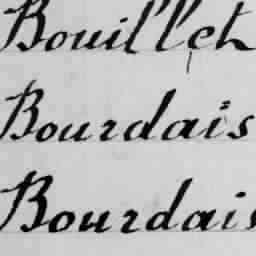 Bouillet
Bourdais
Bourdais